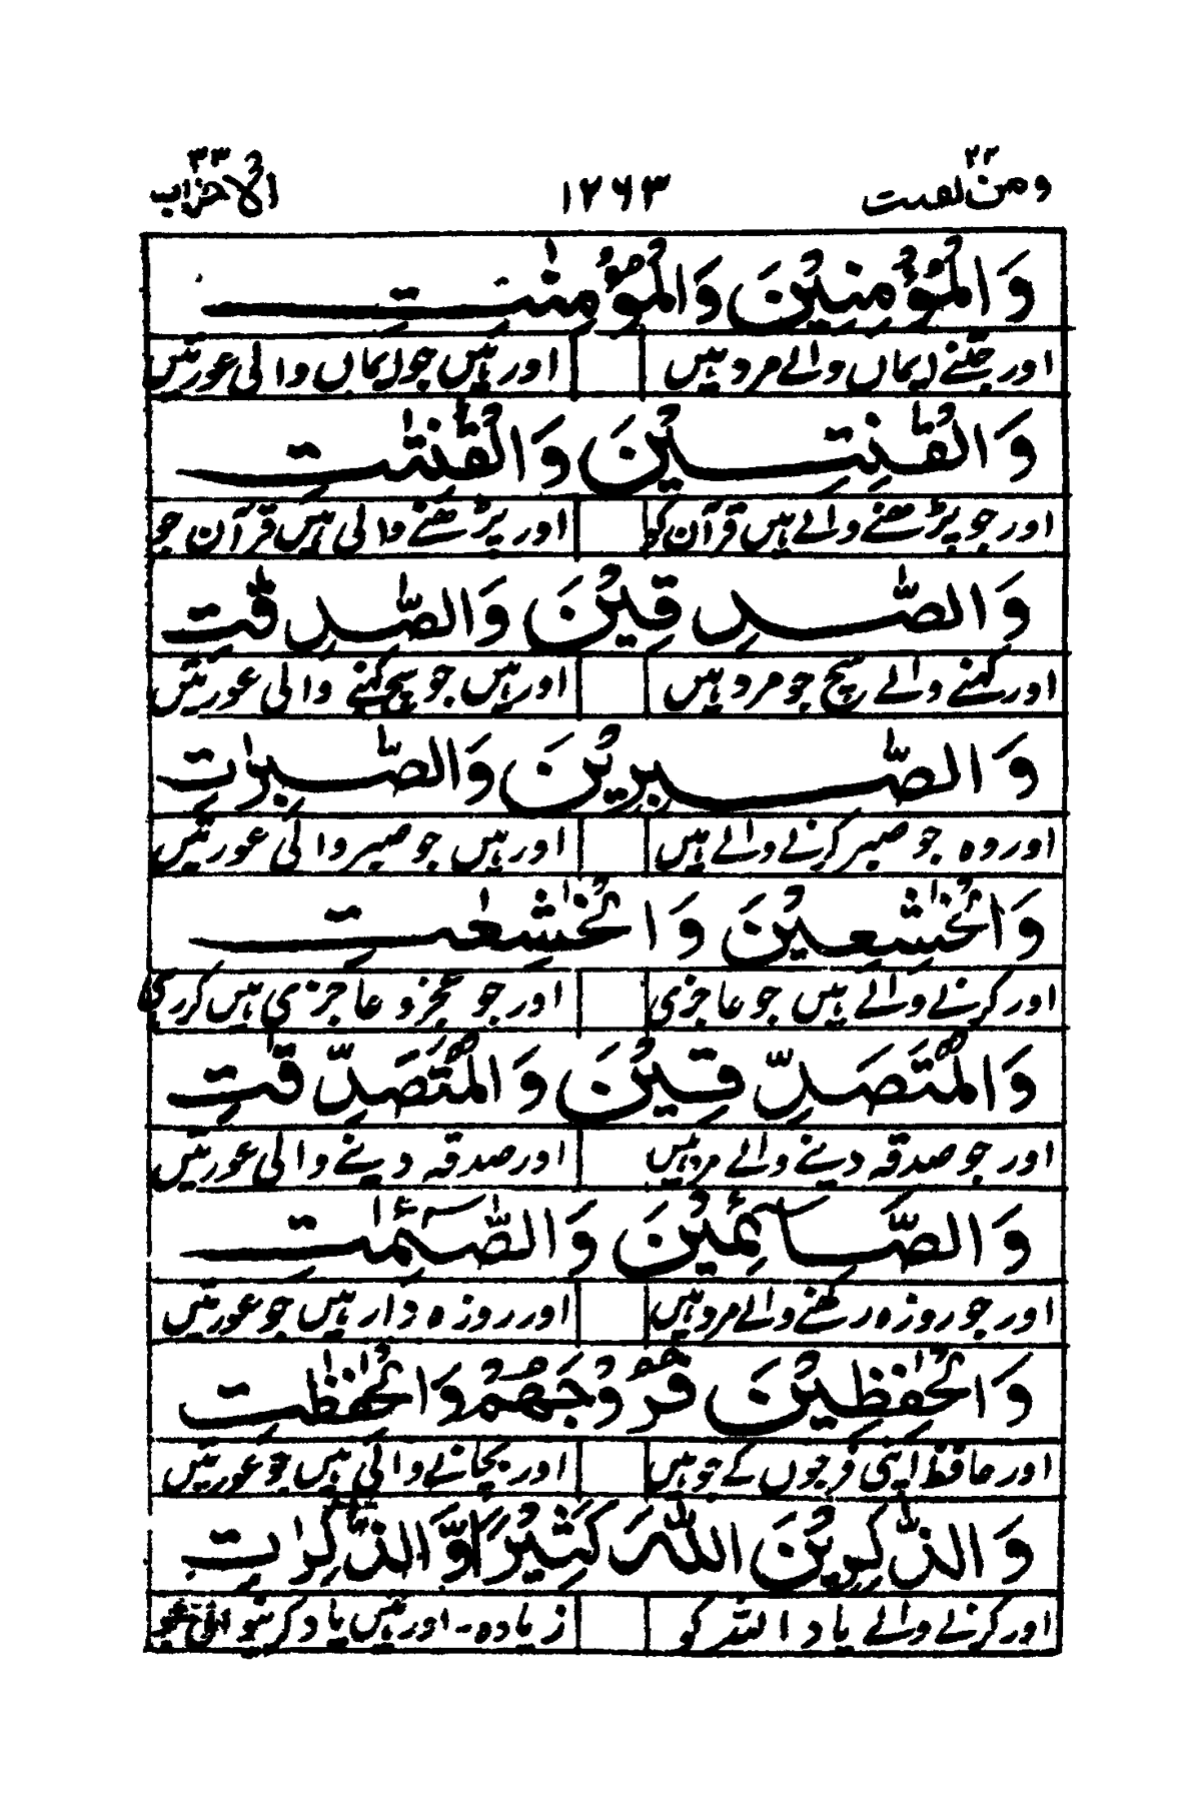 ومن یقنت ۲۲ ۱۲۶۳ الاحزاب ۳۳
وَالْمُؤْمِنِیْنَ وَالْمُؤْمِنٰتِ
اور جتنے ایماں والے مرد ہیں اور ہیں جو ایماں والی عورتیں
وَالْقٰنِتِیْنَ وَالْقٰنِتٰتِ
اور جو پڑھنے والے ہیں قرآن کو اور پڑھنے والی ہیں قرآن جو
وَالصّٰدِقِیْنَ وَالصّٰدِقٰتِ
اور کہنے والے سچ جو مرد ہیں اور ہیں جو سچ کہنے والی عورتیں
وَالصّٰبِرِیْنَ وَالصّٰبِرٰتِ
اور وہ جو صبر کرنے والے ہیں اور ہیں جو صبر والی عورتیں
وَالْخٰشِعِیْنَ وَالْخٰشِعٰتِ
اور کرنے والے ہیں جو عاجزی اور جو عجز و عاجزی ہیں کر رہی
وَالْمُتَصَدِّقِیْنَ وَالْمُتَصَدِّقٰتِ
اور جو صدقہ دینے والے مرد ہیں اور صدقہ دینے والی عورتیں
وَالصَّآئِمِیْنَ وَالصّٰٓئِمٰتِ
اور جو روزہ رکھنے والے مرد ہیں اور روزہ دار ہیں جو عورتیں
وَالْحٰفِظِیْنَ فُرُوْجَهُمْ وَالْحٰفِظٰتِ
اور حافظ اپنی فرجوں کے جو ہیں اور بچانے والی ہیں جو عورتیں
وَالذّٰكِرِیْنَ اللّٰهَ كَثِیْرًا وَّالذّٰكِرٰتِ
اور کرنے والے یاد اللہ کو زیادہ۔ اور ہیں یاد